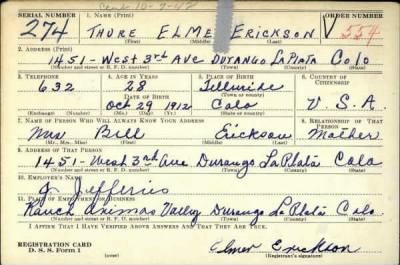 Card 10-9-42
SERIAL NUMBER 1. NAME (Print) ORDER NUMBER
274 THURE ELME ERICKSON V 554
(First) (Middle) (Last)
2. ADDRESS (Print)
1451-West 3rd AVE DURANGO LAPLATA COLO
(Number and street or R. F. D. number) (Town) (County) (State)
3. TELEPHONE 4. AGE IN YEARS 5. PLACE OF BIRTH 6. COUNTRY OF CITIZENSHIP
632 28 Telluride
DATE OF BIRTH (Town or county)
Oct 29 1912 Colo U.S.A.
(Mo.) (Day) (Yr.) (State or country)
7. NAME OF PERSON WHO WILL ALWAYS KNOW YOUR ADDRESS 8. RELATIONSHIP OF THAT PERSON
Mrs Bill Erickson Mother
(Mr., Mrs., Miss) (First) (Middle) (Last)
9. ADDRESS OF THAT PERSON
1451-West 3rd Ave Durango LaPlata Colo
(Number and street or R. F. D. number) (Town) (County) (State)
10. EMPLOYER'S NAME
J Jefferies
11. PLACE OF EMPLOYMENT OR BUSINESS
Ranch Animas Valley Durango La Plata Colo.
(Number and street or R. F. D. number) (Town) (County) (State)
I AFFIRM THAT I HAVE VERIFIED ABOVE ANSWERS AND THAT THEY ARE TRUE.
REGISTRATION CARD
D. S. S. Form 1
Elmer Erickson
(Registrant's signature)